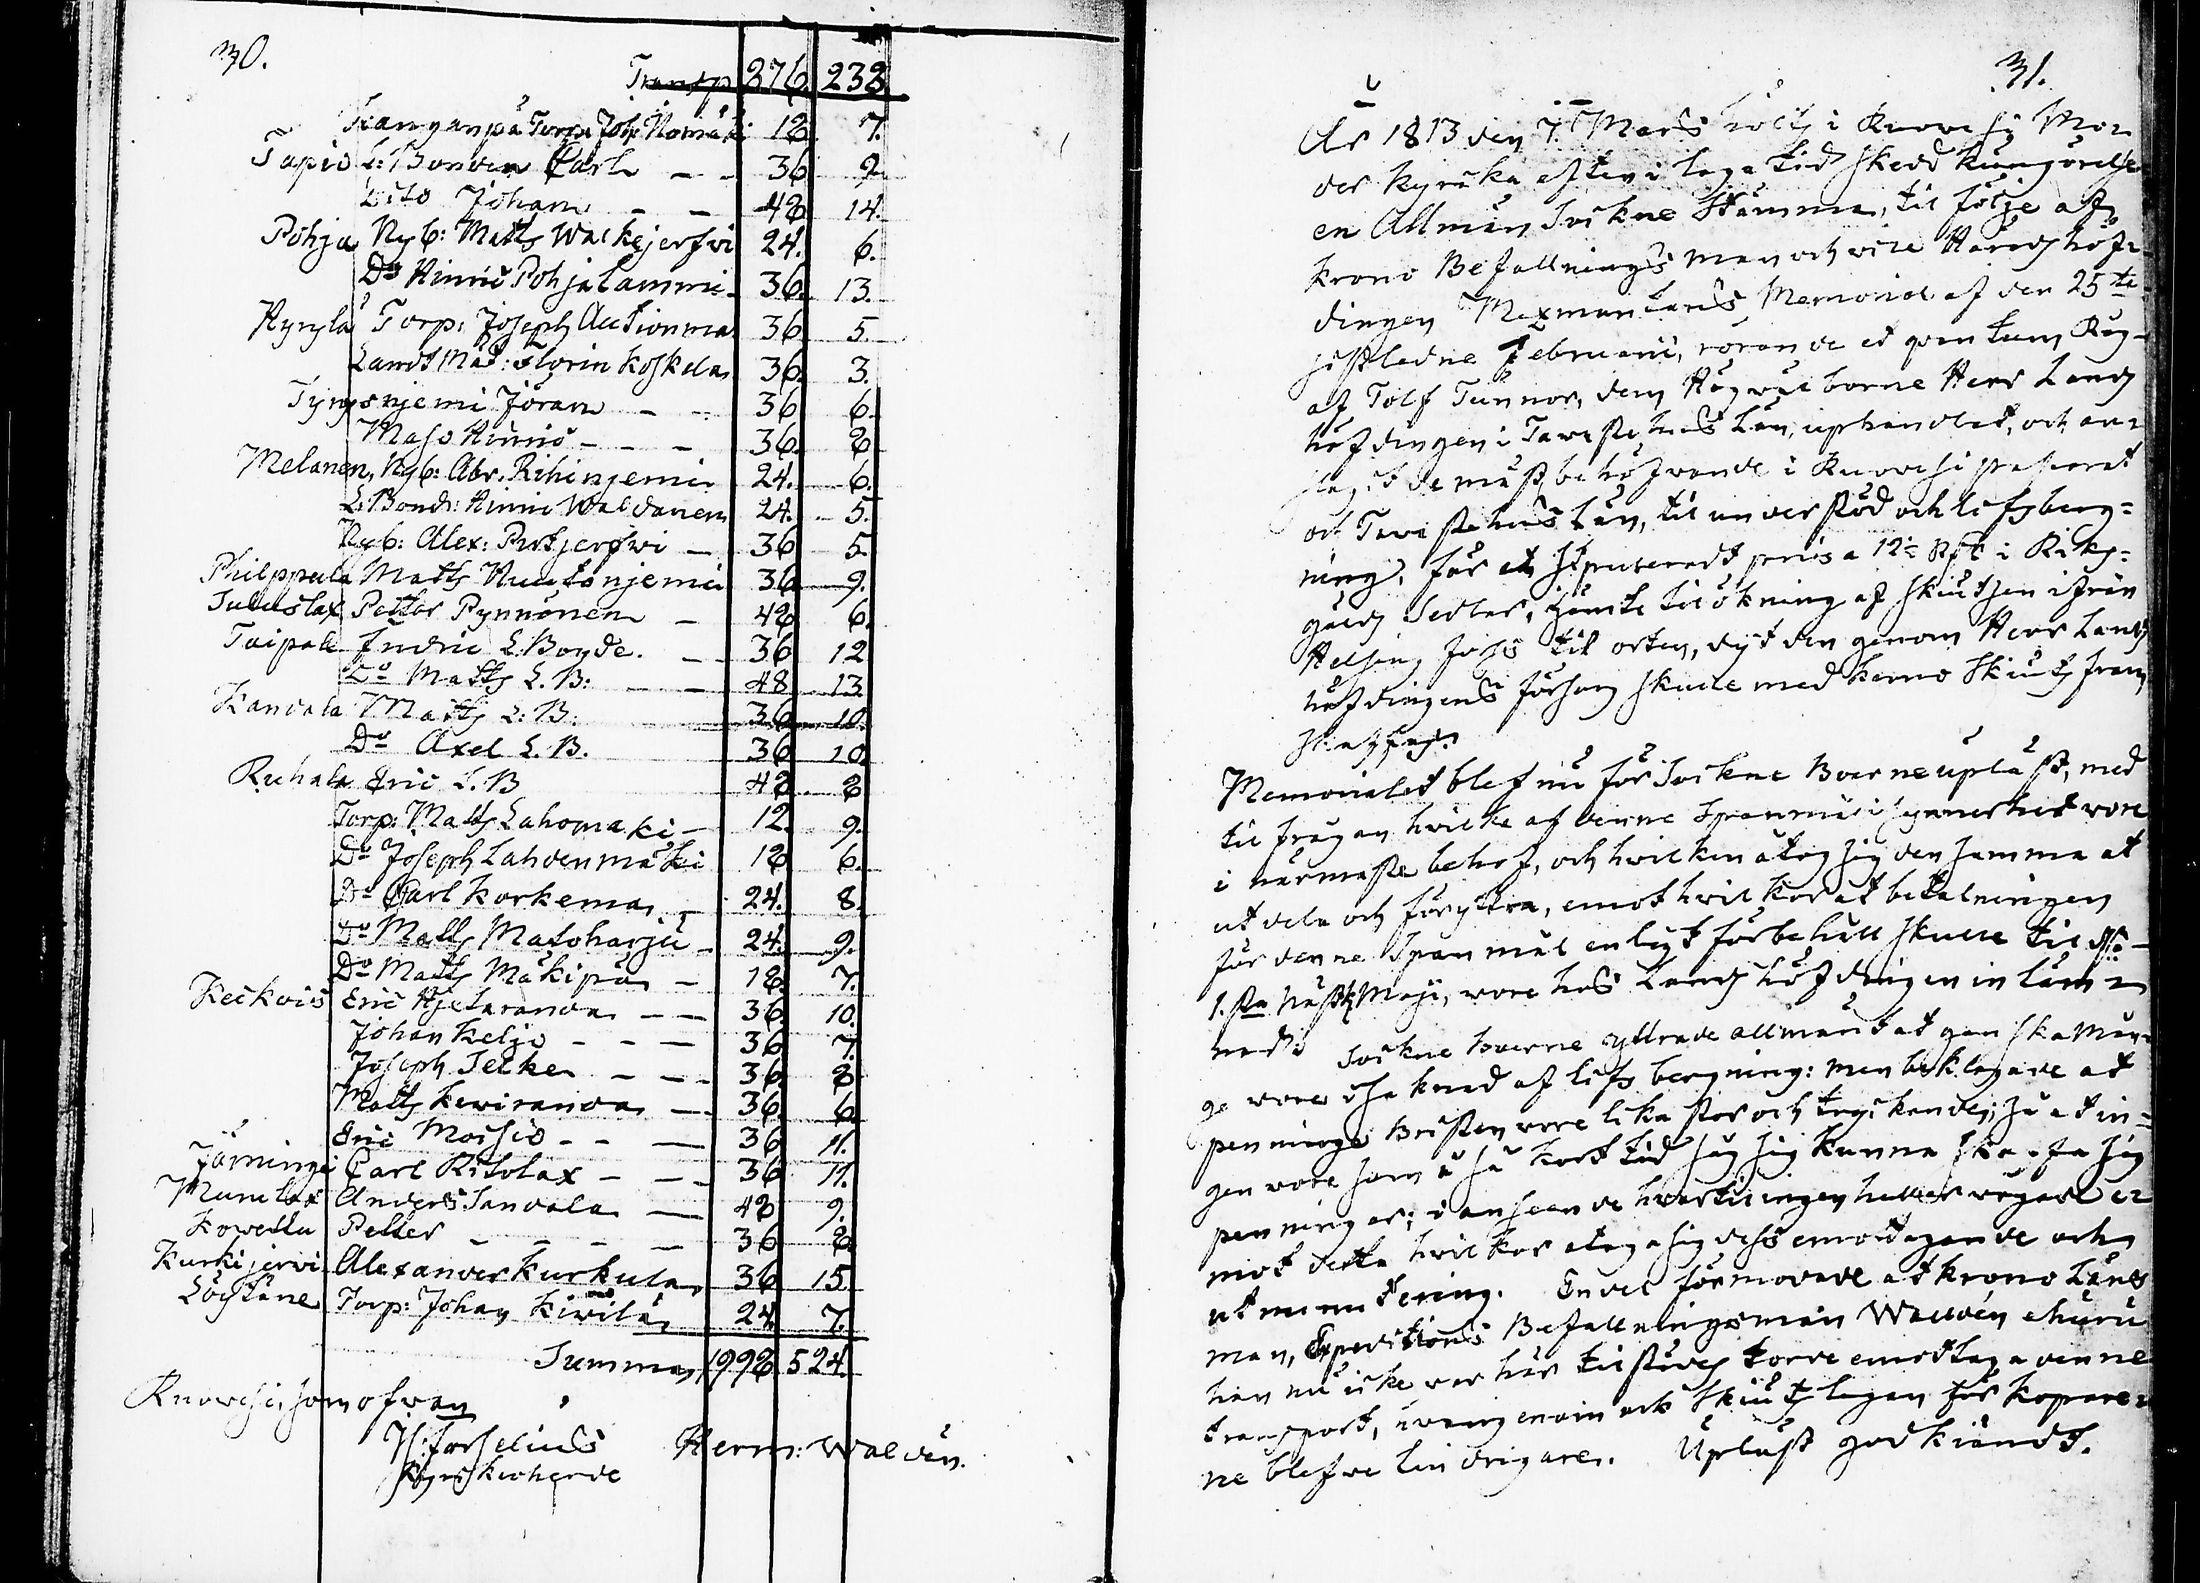 30.
Transp 876. 238.
Kanganpä Torp: Joh: Homäki 18. 7.
Tapio L: Bonden Carl — — 36 9.
Dito Johan — — 48 14.
Pohja Nyb: Matts Walkejerfwi 24. 6.
Do Hinric Pohjalammi 36. 13.
Hyrylä Torp: Joseph Auctionma 36 5.
Landt Mät: Florin Koskela 36. 3.
Tyrysnjemi Jöran — — 36 6.
Maso Hinric — — — 36. 8
Melanen, Nyb: Abr. Rihinjemi 24. 6.
L: Bond: Hinric Waldanen 24. 5.
Nyb: Alex: Pitkjerfwi — 36 5
Philppula Matts Huutonjemi 36 9.
Petter Pynnönen — 48 6.
Taipale Indric L. Bonde. — — 36 12
Do Matts L. B: — — 48 13
Kandala Matts L: B: 36 10.
Do Axel L. B. 36 10.
Ruhala Eric L. B 48 8
Torp: Matts Lahomaki — 12. 9.
Do Joseph Lahdenmäki 18 6.
Do Carl Korkema — 24. 8.
Do Matts Matoharju — 24. 9.
Do Matts Mäkipä — 18. 7.
Keickois Eric Hjetaranda — — 36 10.
Johan Keljo — — — 36 7.
Joseph — — — 36 8
Matts Kewiranda — 36. 6
Eric Moisio — — — 36 11.
Järninge Carl Ritolax — — — 36 11.
Murulax Anders Sandala — 48 9.
Kowella Petter — — — — 36 8
Kurkijerwi Alexander Kurkula 36 15.
Löytäne Torp: Johan Kiwilä 24. 7.
Summa 1998. 524.
Ruowesi, som ofwan
Herm: Waldén.
Kyrckoherde
31.
År 1813 den 7. Mars hölts i Ruowesi Mo-
der kyrcka efter i laga tid skedd kungörelse
en Allmän Sockne Stämma, til följe af
Krono Befallnings man och vice Härads höf-
dingen Mexmontans Memorial af den 25te
sistledne Februarii, rörande et quantum Råg
af Tolf Tunnor, dem Högwälborne Herr Lands
höfdingen i Tawastehus Län, uphandlat, och an-
slagit de mäst behöfwande i Ruowesi pastorat
och Tawastehus Län, til understöd och lifsberg-
ning, för et stipuleradt pris a 12 i Riks-
gälds Sedlar, jämte tilökning af skiutsen ifrån
Helsing fors til orten, dyt den genom Herr Lands
höfdingens försorg skulle med krono Skiuts fram
skaffas.
Memorialet blef nu för Sockne Boerne upläst, med
tilfrågan hwilke af denne Spanmål i synnerhet wore
i närmaste behof, och hwilken åtog sig den samma at
utdela och försyttra, emot hwilkor at betalningen
för denne Spanmål enligt förbehåll skulle til d.
1.sta nästk. Maji, wore hos Lands höfdingen inläm-
nad. Sockne boerne yttrade allmänt at ganska Mån-
ge wore i saknad af lifs bergning: men beklagade at
penninge Bristen wore lika stor och tryckande; så at in-
gen wore som å så kort tid såg sig kunna skaffa sig
penningar; i anseende hwartil ingen heller wågade e-
mot detta hwilkor åtaga sig dess emottagande och
utminutering. Endel förmodade at Krono Läns
man, Expeditions Befallningsman Waldén ehuru
han nu icke war här tilstädes torde emottaga denne
transport, hwarigenom ock Skiuts legan för köpare-
ne blefwe lindrigare. Upläst godkiändt.